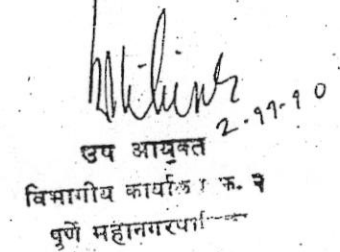 2-11-10
उप आयुक्त
विभागीय कार्यालय क्र. २
पुणे महानगरपालिका